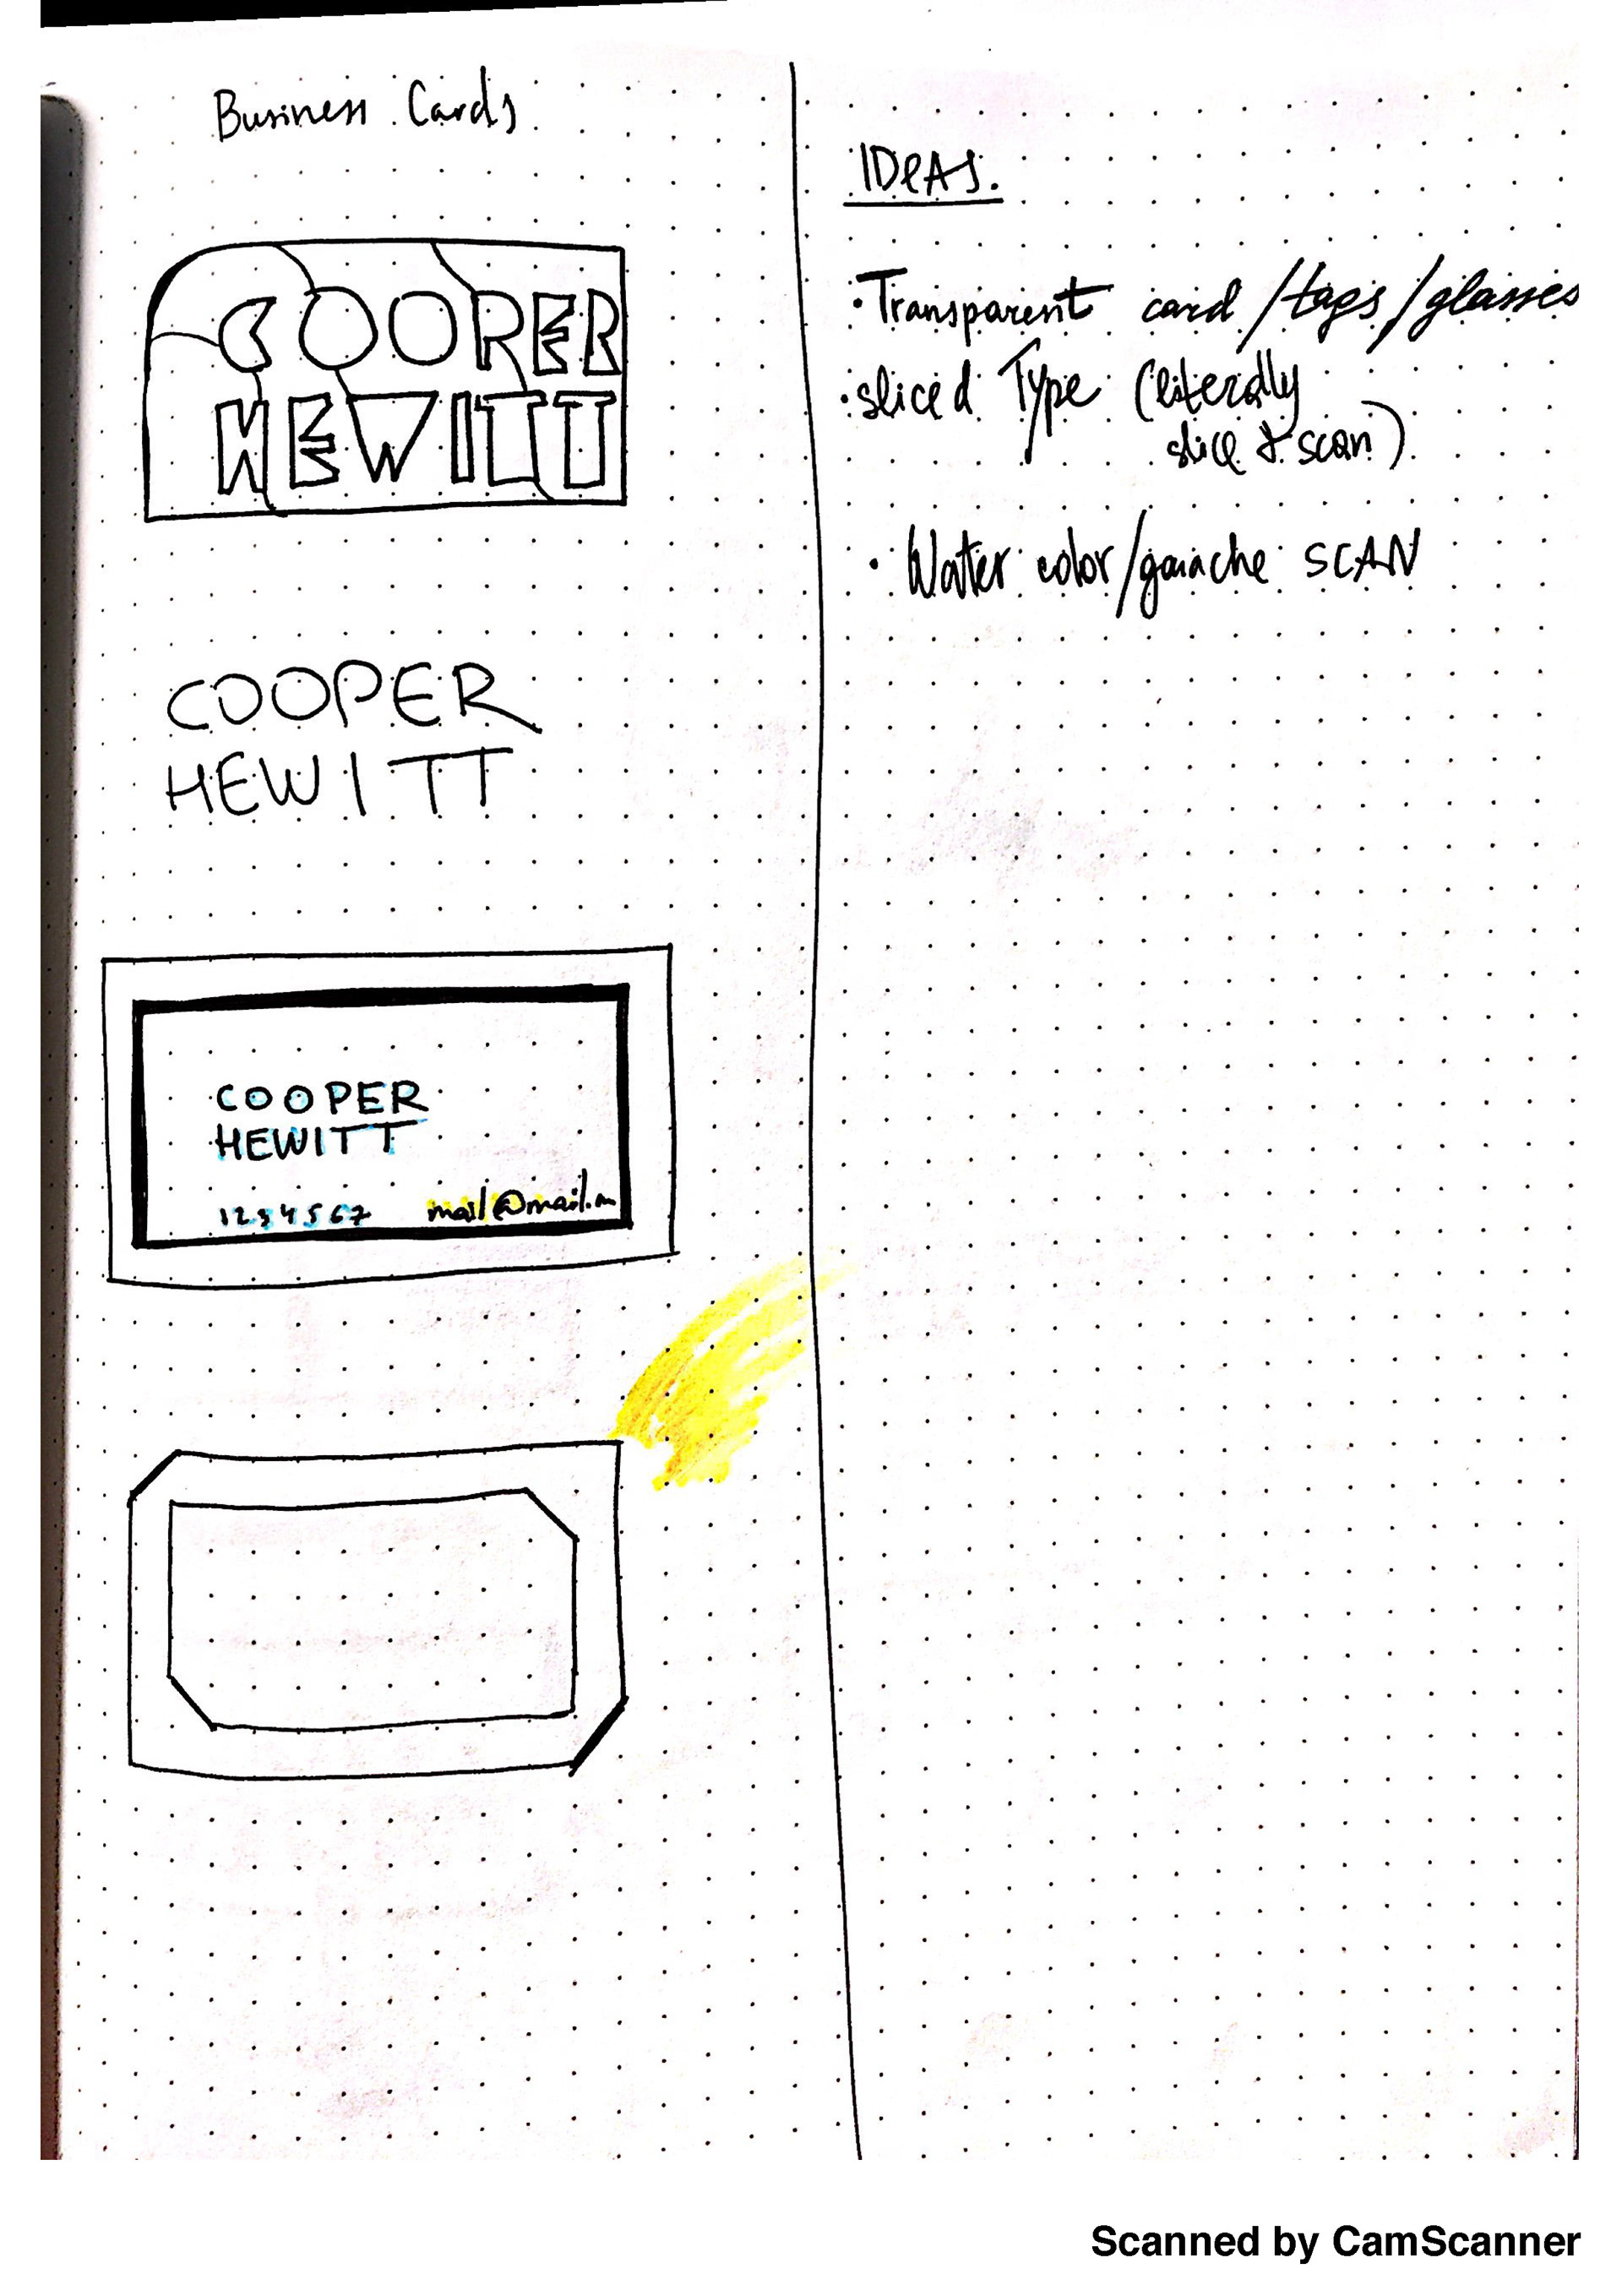 Business Cards
COOPER
HEWITT
COOPER
HEWITT
COOPER
HEWITT
1234567 mail@mail.m
IDeAs.
• Transparent card/tags/glasses
• sliced Type (literally
slice & scan)
• Water color/gouache SCAN
Scanned by CamScanner